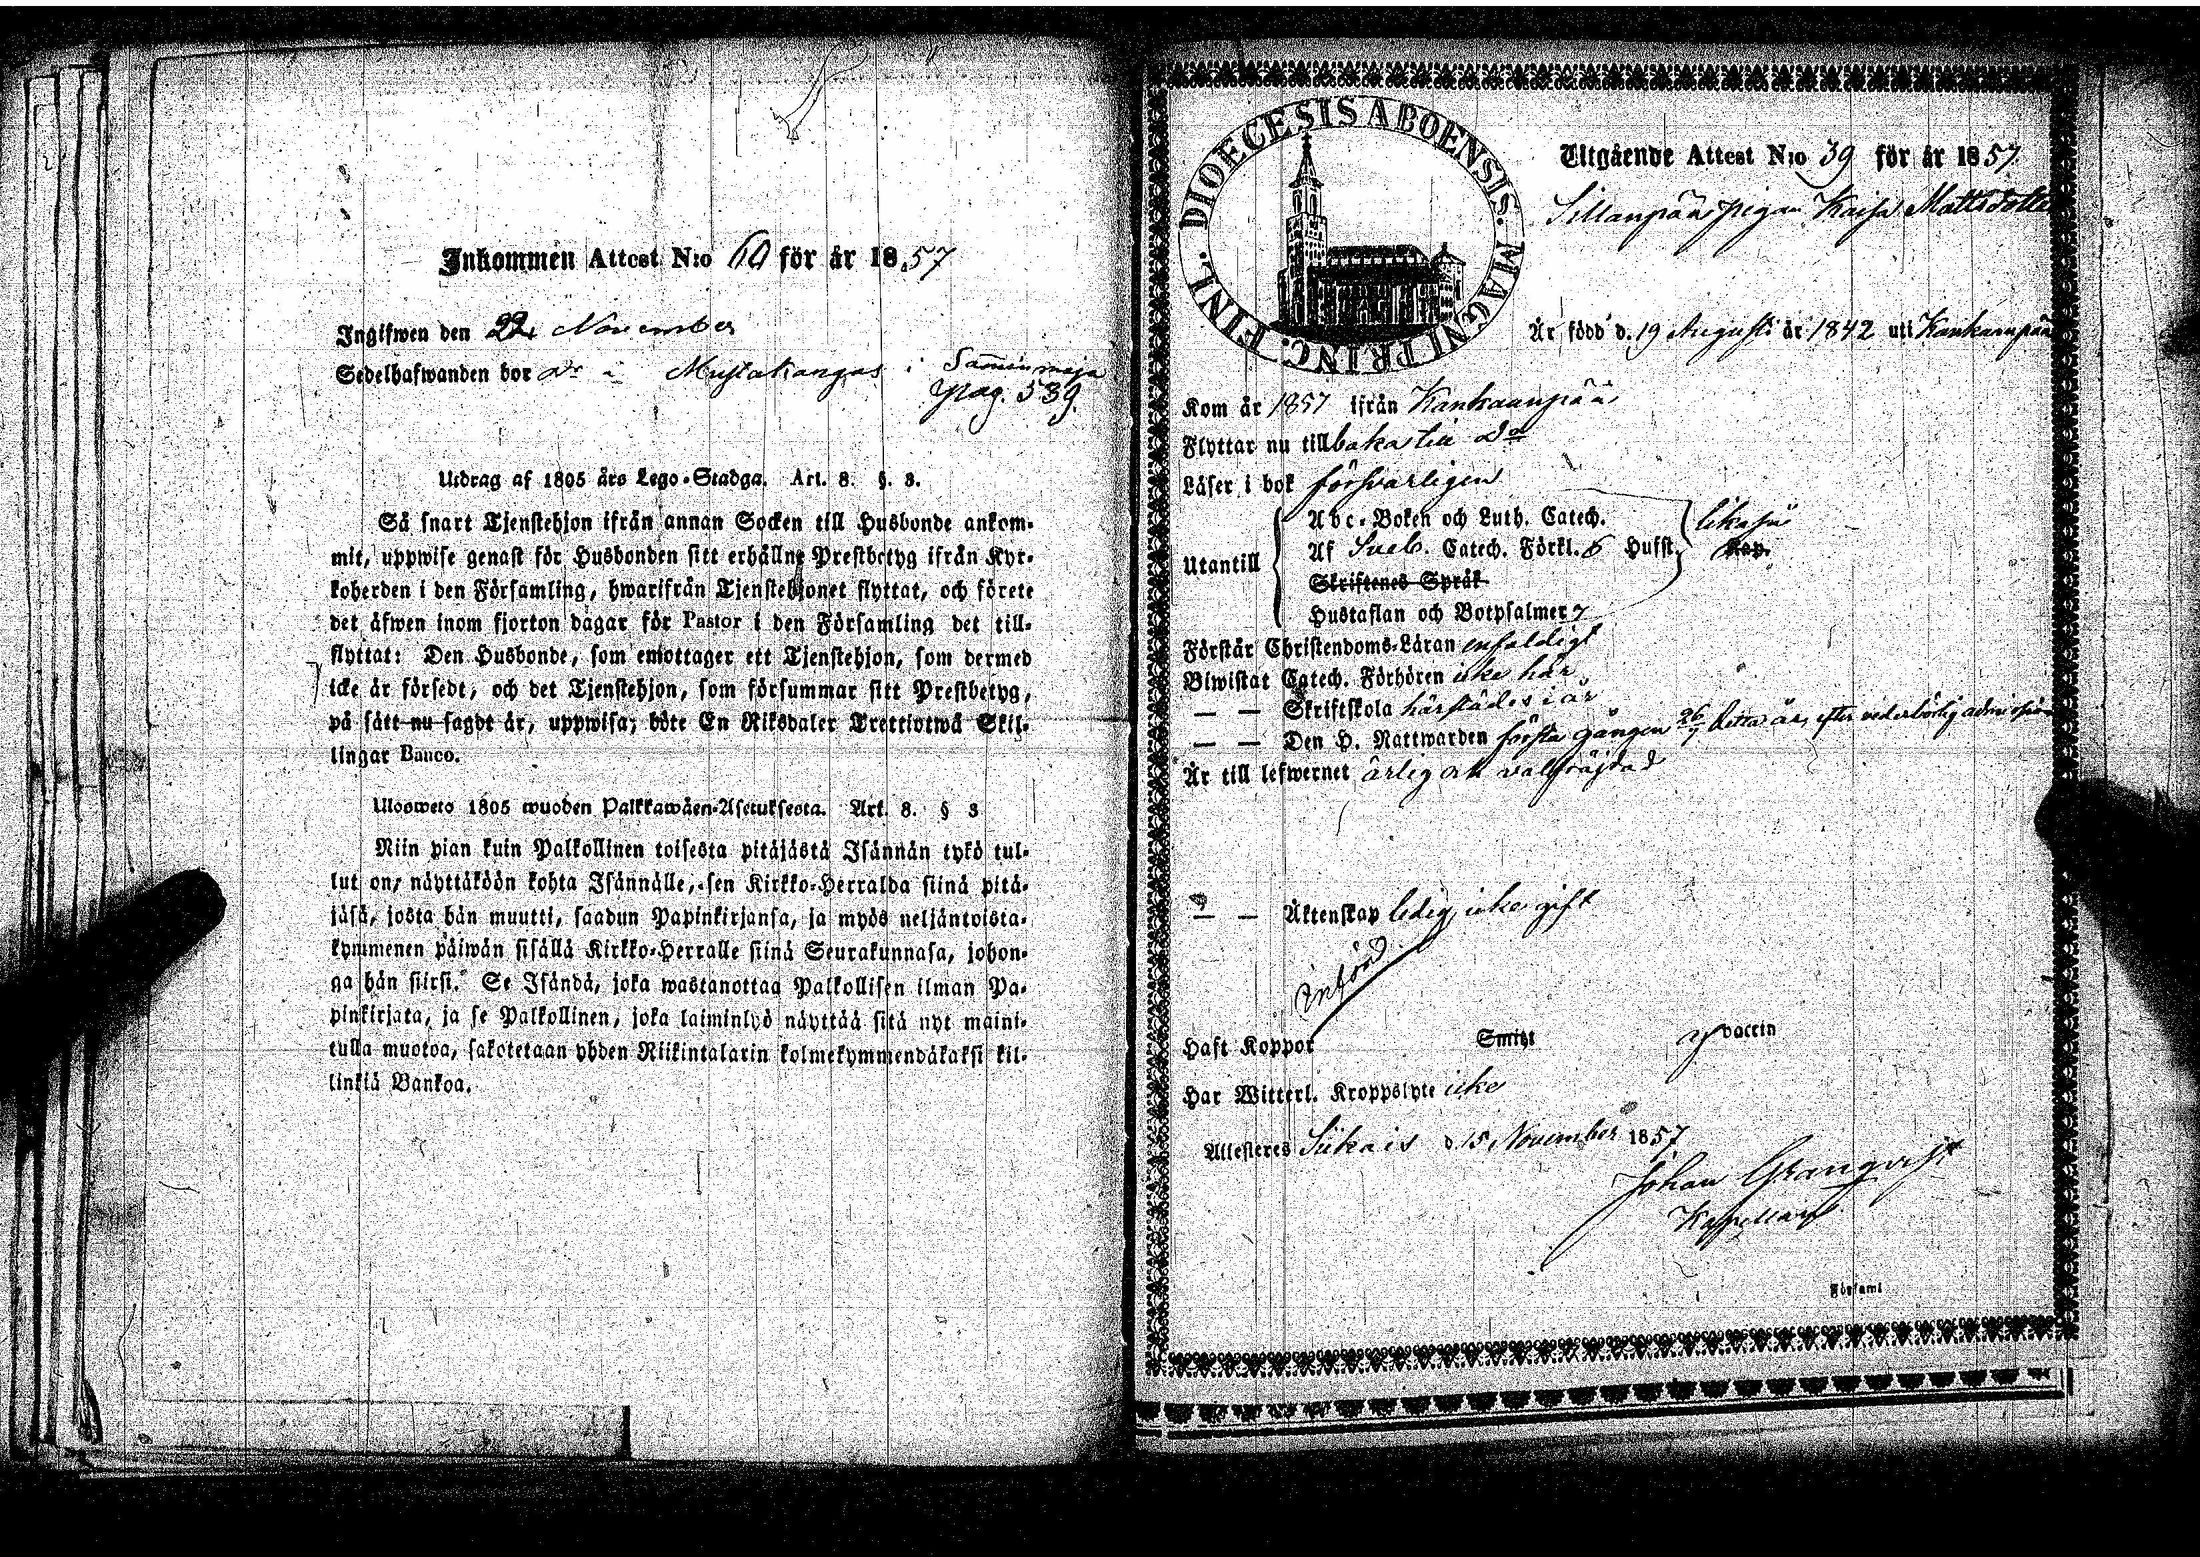 Inkommen Attest N:o 60 för år 1857
Ingifwen den 22 November
Sedelhafwanden bor
Mustakangas i Samminmaja
Pag. 539.
Utdrag af 1805 års Lego-Stadga. Art. 8. §. 3.
Så snart Tjenstehjon ifrån annan Socken till Husbonde ankom-
mit, uppwise genast för Husbonden sitt erhållne Prestbetyg ifrån Kyr-
koherden i den Församling, hwarifrån Tjenstehjonet flyttat, och förete
det äfwen inom fjorton dagar för Pastor i den Församling det till-
flyttat: Den Husbonde, som emottager ett Tjenstehjon, som dermed
icke är försedt, och det Tjenstehjon, som försummar sitt Prestbetyg,
på sätt nu sagdt är, uppwisa; böte En Riksdaler Trettiotwå Skil-
lingar Banco.
Ulosweto 1805 wuoden Palkkawäen-Asetuksesta. Art. 8. § 3
Niin pian kuin Palkollinen toisesta pitäjästä Isännän tykö tul-
lut on, näyttäköön kohta Isännälle, sen Kirkko-Herralda siinä pitä-
jäsä, josta hän muutti, saadun Papinkirjansa, ja myös neljäntoista-
kymmenen päiwän sisällä Kirkko-Herralle siinä Seurakunnasa, johon-
ga hän siirsi. Se Isändä, joka wastanottaa Palkollisen ilman Pa-
pinkirjata, ja se Palkollinen, joka laiminlyö näyttää sitä nyt maini-
tulla muotoa, sakotetaan yhden Riikintalarin kolmekymmendäkaksi kil-
linkiä Bankoa.
DIOECESIS ABOENSIS. MAGNI PRINC. FINL.
Utgående Attest N:o 39 för år 1857.
Sillanpää pigan Kaisa Mattsdotter
Är född d. 19 Augusti år 1842 uti Kankaanpää
Kom år 1857 ifrån Kankaanpää
Flyttar nu tillbaka till do
Läser i bok försvarligen
Utantill
Abc-Boken och Luth. Catech.
Af Sveb. Catech. Förkl. 6 Hufst.
likaså
Kap.
Skriftenes Språk
Hustaflan och Botpsalmer 7
Förstår Christendoms-Läran enfaldigt
Biwistat Catech. Förhören icke här
— — Skriftskola härstädes i år
— — Den H. Nattwarden första gången 26/7 detta år, efter vederbörlig admission
Är till lefwernet ärlig och välfräjdad
— — Äktenskap ledig, icke gift
införd
Haft Koppor Smitt vaccin
Har Witterl. Kroppslyte icke
Attesteres Siikais d. 15 November 1857
Johan Granqvist
Kapellan
Församl